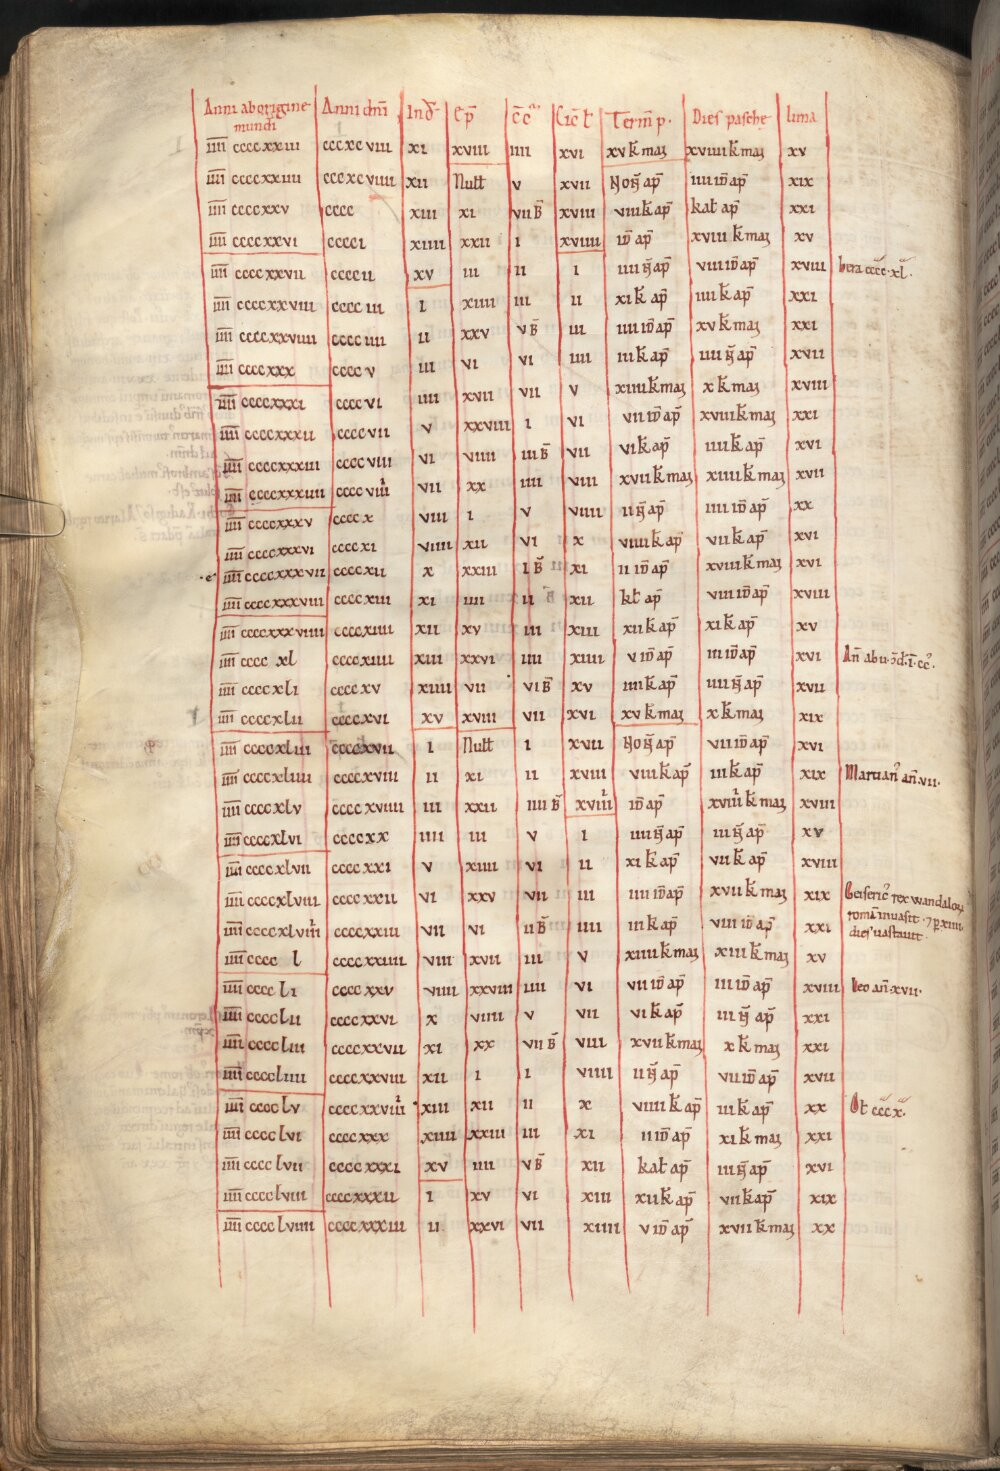 Anni ab origine mundi Anni dñi Ind̄ Ep̄ c̄c̄ Cic̄ ł Term̄ p. Dies pasche luna
ιιιι̅ ccccxxiii cccxcviii xi xviii iiii xvi xv k̄ maȷ xviiii k̄ maȷ xv
ιιιι̅ ccccxxiiii cccxcviiii xii Nułł v xvii Non̄ ap̄ iiii id̄ ap̄ xix
ιιιι̅ ccccxxv cccc xiii xi vii B̄ xviii viii k̄ ap̄ kał ap̄ xxi
ιιιι̅ ccccxxvi cccci xiiii xxii i xviiii id̄ ap̄ xviii k̄ maȷ xv
ιιιι̅ ccccxxvii ccccii xv iii ii i iiii n̄ ap̄ viii id̄ ap̄ xviii
ιιιι̅ ccccxxviii cccciii i xiiii iii ii xi k̄ ap̄ iiii k̄ ap̄ xxi
ιιιι̅ ccccxxviiii cccciiii ii xxv v B̄ iii iiii id̄ ap̄ xv k̄ maȷ xxi
ιιιι̅ ccccxxx ccccv iii vi vi iiii iii k̄ ap̄ iiii n̄ ap̄ xvii
ιιιι̅ ccccxxxi ccccvi iiii xvii vii v xiiii k̄ maȷ x k̄ maȷ xviii
ιιιι̅ ccccxxxii ccccvii v xxviii i vi vii id̄ ap̄ xviii k̄ maȷ xxi
ιιιι̅ ccccxxxiii ccccviii vi viiii iii B̄ vii vi k̄ ap̄ iiii k̄ ap̄ xvi
ιιιι̅ ccccxxxiiii ccccviiii vii xx iiii viii xvii k̄ maȷ xiiii k̄ maȷ xvii
ιιιι̅ ccccxxxv ccccx viii i v viiii ii n̄ ap̄ iiii id̄ ap̄ xx
ιιιι̅ ccccxxxvi ccccxi viiii xii vi x viiii k̄ ap̄ vii k̄ ap̄ xvi
ιιιι̅ ccccxxxvii ccccxii x xxiii i B̄ xi ii id̄ ap̄ xviii k̄ maȷ xvi
ιιιι̅ ccccxxxviii ccccxiii xi iiii ii xii kł ap̄ viii id̄ ap̄ xviii
ιιιι̅ ccccxxxviiii ccccxiiii xii xv iii xiii xii k̄ ap̄ xi k̄ ap̄ xv
ιιιι̅ cccc xl ccccxiiii xiii xxvi iiii xiiii v id̄ ap̄ iii id̄ ap̄ xvi
ιιιι̅ ccccxli ccccxv xiiii vii vi B̄ xv iiii k̄ ap̄ iiii n̄ ap̄ xvii
ιιιι̅ ccccxlii ccccxvi xv xviii vii xvi xv k̄ maȷ x k̄ maȷ xix
ιιιι̅ ccccxliii ccccxvii i Nułł i xvii Non̄ ap̄ vii id̄ ap̄ xvi
ιιιι̅ ccccxliiii ccccxviii ii xi ii xviii viii k̄ ap̄ iii k̄ ap̄ xix Maruan' an̄. vii.
ιιιι̅ ccccxlv ccccxviiii iii xxii iiii B̄ xviiii id̄ ap̄ xviiii k̄ maȷ xviii
ιιιι̅ ccccxlvi ccccxx iiii iii v i iiii n̄ ap̄ iii n̄ ap̄ xv
ιιιι̅ ccccxlvii ccccxxi v xiiii vi ii xi k̄ ap̄ vii k̄ ap̄ xviii
ιιιι̅ ccccxlviii ccccxxii vi xxv vii iii iiii id̄ ap̄ xvii k̄ maȷ xix Geiseric' rex wandaloꝝ
romā inuasit ⁊ p xiiii.
dies uastauit.
ιιιι̅ ccccxlviiii ccccxxiii vii vi ii B̄ iiii iii k̄ ap̄ viii id̄ ap̄ xxi
ιιιι̅ cccc l ccccxxiiii viii xvii iii v xiiii k̄ maȷ xiii k̄ maȷ xv
ιιιι̅ ccccli ccccxxv viiii xxviii iiii vi vii id̄ ap̄ iiii id̄ ap̄ xviii Leo an̄. xvii.
ιιιι̅ cccclii ccccxxvi x viiii v vii vi k̄ ap̄ iii n̄ ap̄ xxi
ιιιι̅ ccccliii ccccxxvii xi xx vii B̄ viii xvii k̄ maȷ x k̄ maȷ xxi
ιιιι̅ ccccliiii ccccxxviii xii i i viiii ii n̄ ap̄ vii id̄ ap̄ xvii
ιιιι̅ cccclv ccccxxviiii xiii xii ii x viiii k̄ ap̄ iii k̄ ap̄ xx Oł ccc.x.
ιιιι̅ cccclvi ccccxxx xiiii xxiii iii xi ii id̄ ap̄ xi k̄ maȷ xxi
ιιιι̅ cccclvii ccccxxxi xv iiii v B̄ xii kał ap̄ iii n̄ ap̄ xvi
ιιιι̅ cccclviii ccccxxxii i xv vi xiii xii k̄ ap̄ vii k̄ ap̄ xix
ιιιι̅ cccclviiii ccccxxxiii ii xxvi vii xiiii v id̄ ap̄ xvii k̄ maȷ xx